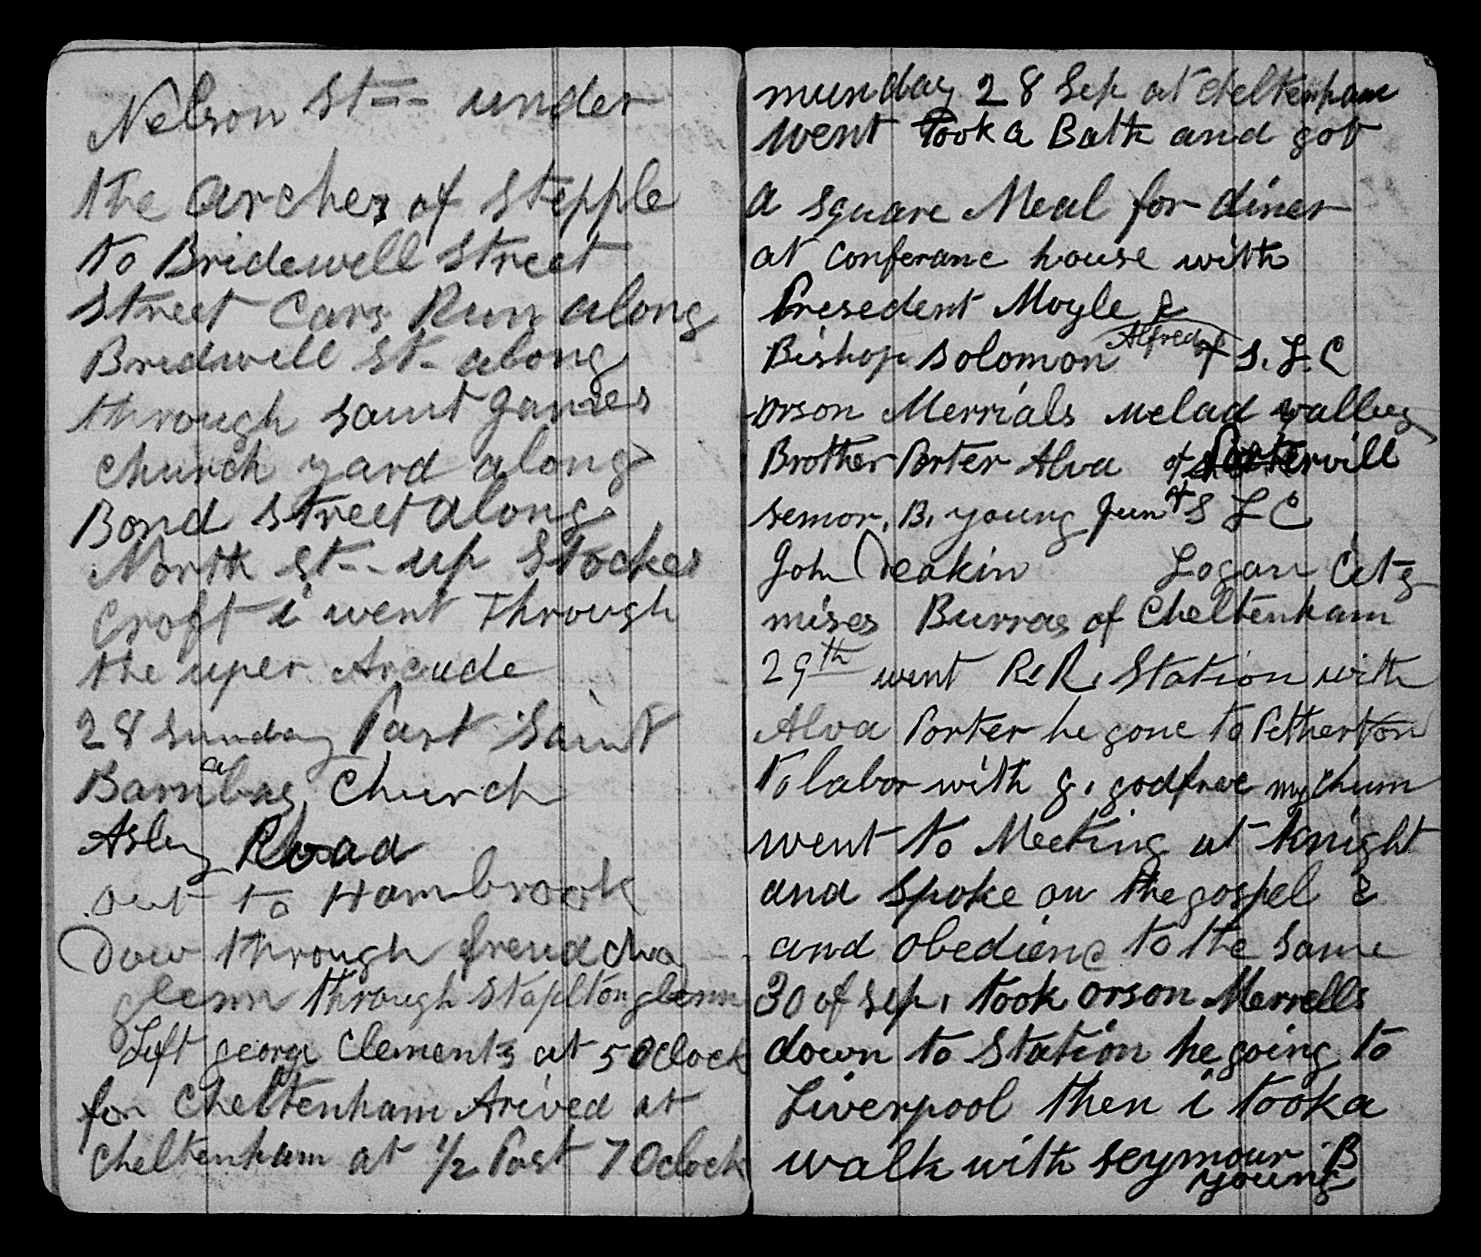 Nelson St-- under
the arches of Stepple
to Bridewell Street
Street Cars Run along
Bridwell St- along
through saint James
church yard along
Bond Street along
North St-- up Stockes
croft i went Through
the uper Arcade
28 Sunday Past Saint
Barnabas Church
Asley Road
out to Hambrook
Dow through frend cha
glenn through Stapltonglenn
Left george Clements at 5 Oclock
for Cheltenham Arived at
Cheltenham at 1/2 Past 7 Oclock
munday 28 Sep at Cheltenham
went Took a Bath and got
a square Meal for diner
at conferanc house with
Presedent Moyle &
Bishop Solomon Alfred of S. L. C
orson Merrials Melad valley
Brother Porter Alva of Portervill
semor. B. young Jun of S L C
John Deakin Logan City
mises Burras of Cheltenham
29th went R.R. Station with
Alva Porter he gone to Petherton
to labor with G. godfree my chum
went to Meeting at Knight
and spoke on the gospel &
and obedienc to the same
30 of Sep. took orson Merrells
down to Station he going to
Liverpool then i took a
walk with seymour B
young